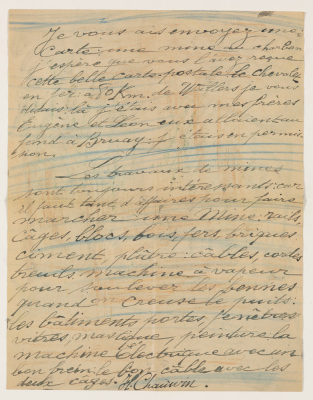 Je vous ais envoyer une
Carte une mine de charbon
j'espère que vous l'avez reçue
cette belle carte postale le chevalet
en fer à 3 Km. de Wallers je vous
dis là j'étais avec mes frères
Eugène et Léon eux allaient au
fond à Bruay. j'étais en permis-
sion.
Les travaux de mines
sont toujours intéressants: car
il faut tant d'affaires pour faire
marcher une Mine: rails,
câges, blocs, bois, fers, briques
ciment, plâtre: câbles, cordes
machine à vapeur
pour soulever les bennes
quand on creuse le puits:
les bâtiments portes, fenêtres
vitres, mastique, peinture la
machine électrique avec un
bon frein le bon câble avec les
deux cages.